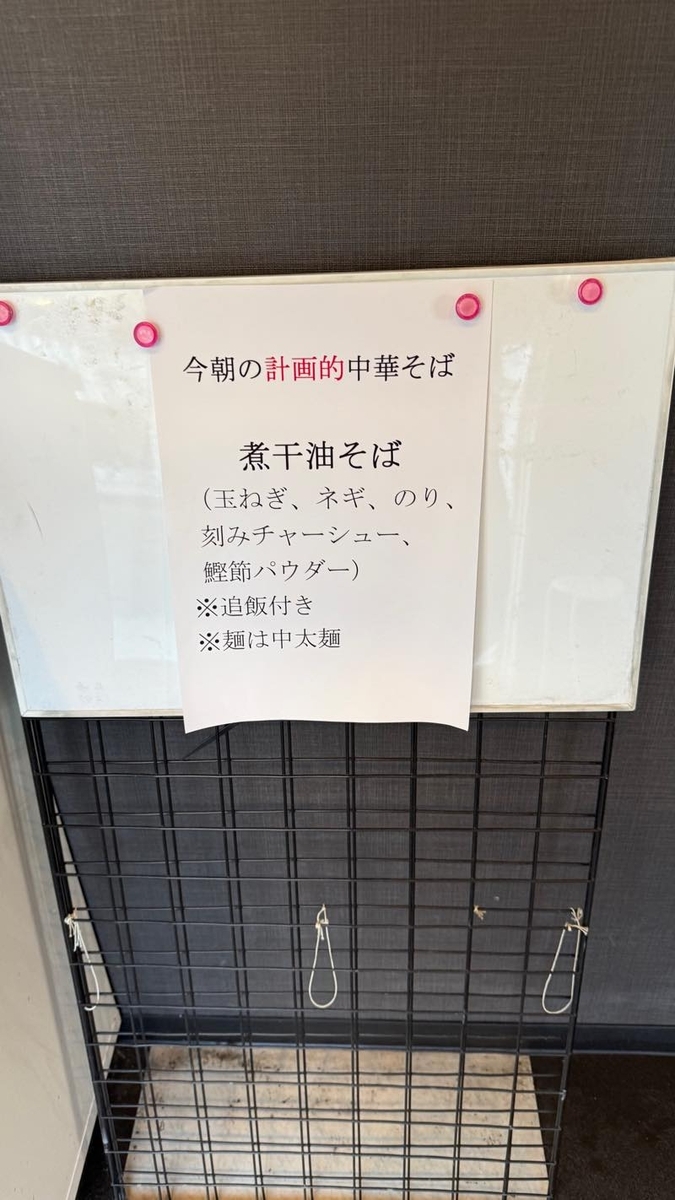 今朝の計画的中華そば
煮干油そば
（玉ねぎ、ネギ、のり、
刻みチャーシュー、
鰹節パウダー）
※追飯付き
※麺は中太麺